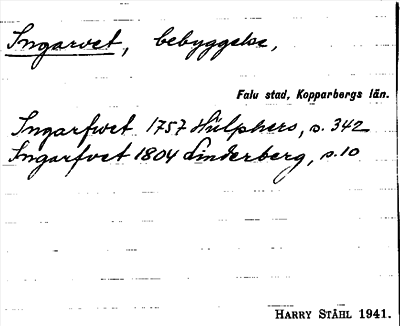 Ingarvet, bebyggelse,
Falu stad, Kopparbergs län.
Ingarfwet 1757 Hülphers, s. 342
Ingarfvet 1804 Linderberg, s. 10
HARRY STÅHL 1941.